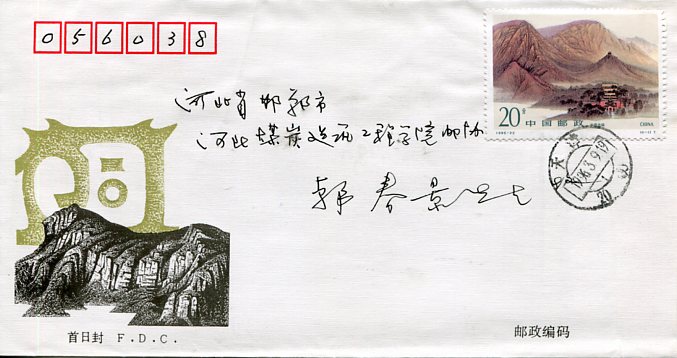 056038
20分
中国邮政
CHINA
河北省邯郸市
河北煤炭建筑工程学院邮协
郭春景先生
首日封 F.D.C.
邮政编码